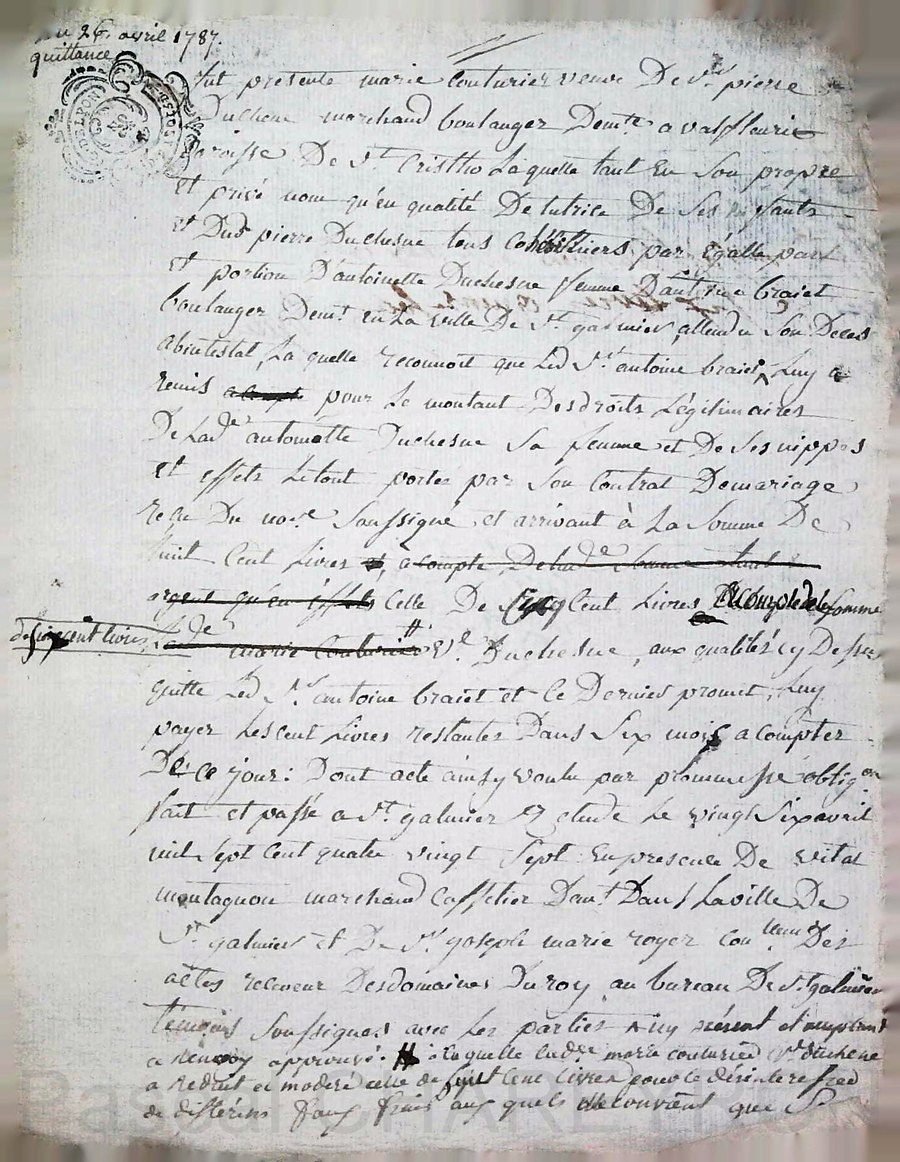 Du 26 avril 1787.
quittance
fut presente marie Couturier veuve De Sr. pierre
Duchene marchand boulanger Demte a valfleurie
paroisse De St. Cristho Laquelle tant En Son propre
Et privé nom qu'en qualité De tutrice De Ses enfants
Et Dud pierre Duchesne tous Cohéritiers par Egalle part
Et portion D'antoinette Duchesne femme D'antoine braiet
boulanger Demt. en La ville De St. galmier, attendu Son Deces
abintestat, La quelle reconnoit que Led Sr. antoine braiet, Luy a
remis a compte pour Le montant Des droits Légitimaires
De Lade antoinette Duchesne Sa femme et De Ses nippes
Et effets Le tout portés par Son Contrat De mariage
recu Du nore Soussigné et arrivant à La Somme De
huit Cent Livres à compte De lade Somme tant
argent qu'en effets Celle De Cent Livres de la Somme
de Cinq cent livres
Lade marie Couturier ve. Duchesne, aux qualités cy Dessus
quitte Led Sr. antoine braiet et Ce Dernier promet, Luy
payer Les cent Livres restantes Dans Six mois a compter
De Ce jour: Dont acte ainsy voulu par promesse obligon
fait et passé a St. galmier Etude Le vingt Six avril
mil Sept Cent quatre vingt Sept En presence De vital
montagnon marchand Caffetier Dant. Dans La ville De
St. galmier et De Sr. joseph marie royer Des
actes receveur Des domaines Du roy au bureau De St. galmier
témoins Soussignés avec Les parties
a renvoy approuvé. # à laquelle lade marie couturier ve. duchene
a Reduit et modéré celle de Cent Livres pour le désinteresser
de differens faux frais aux quels convient que